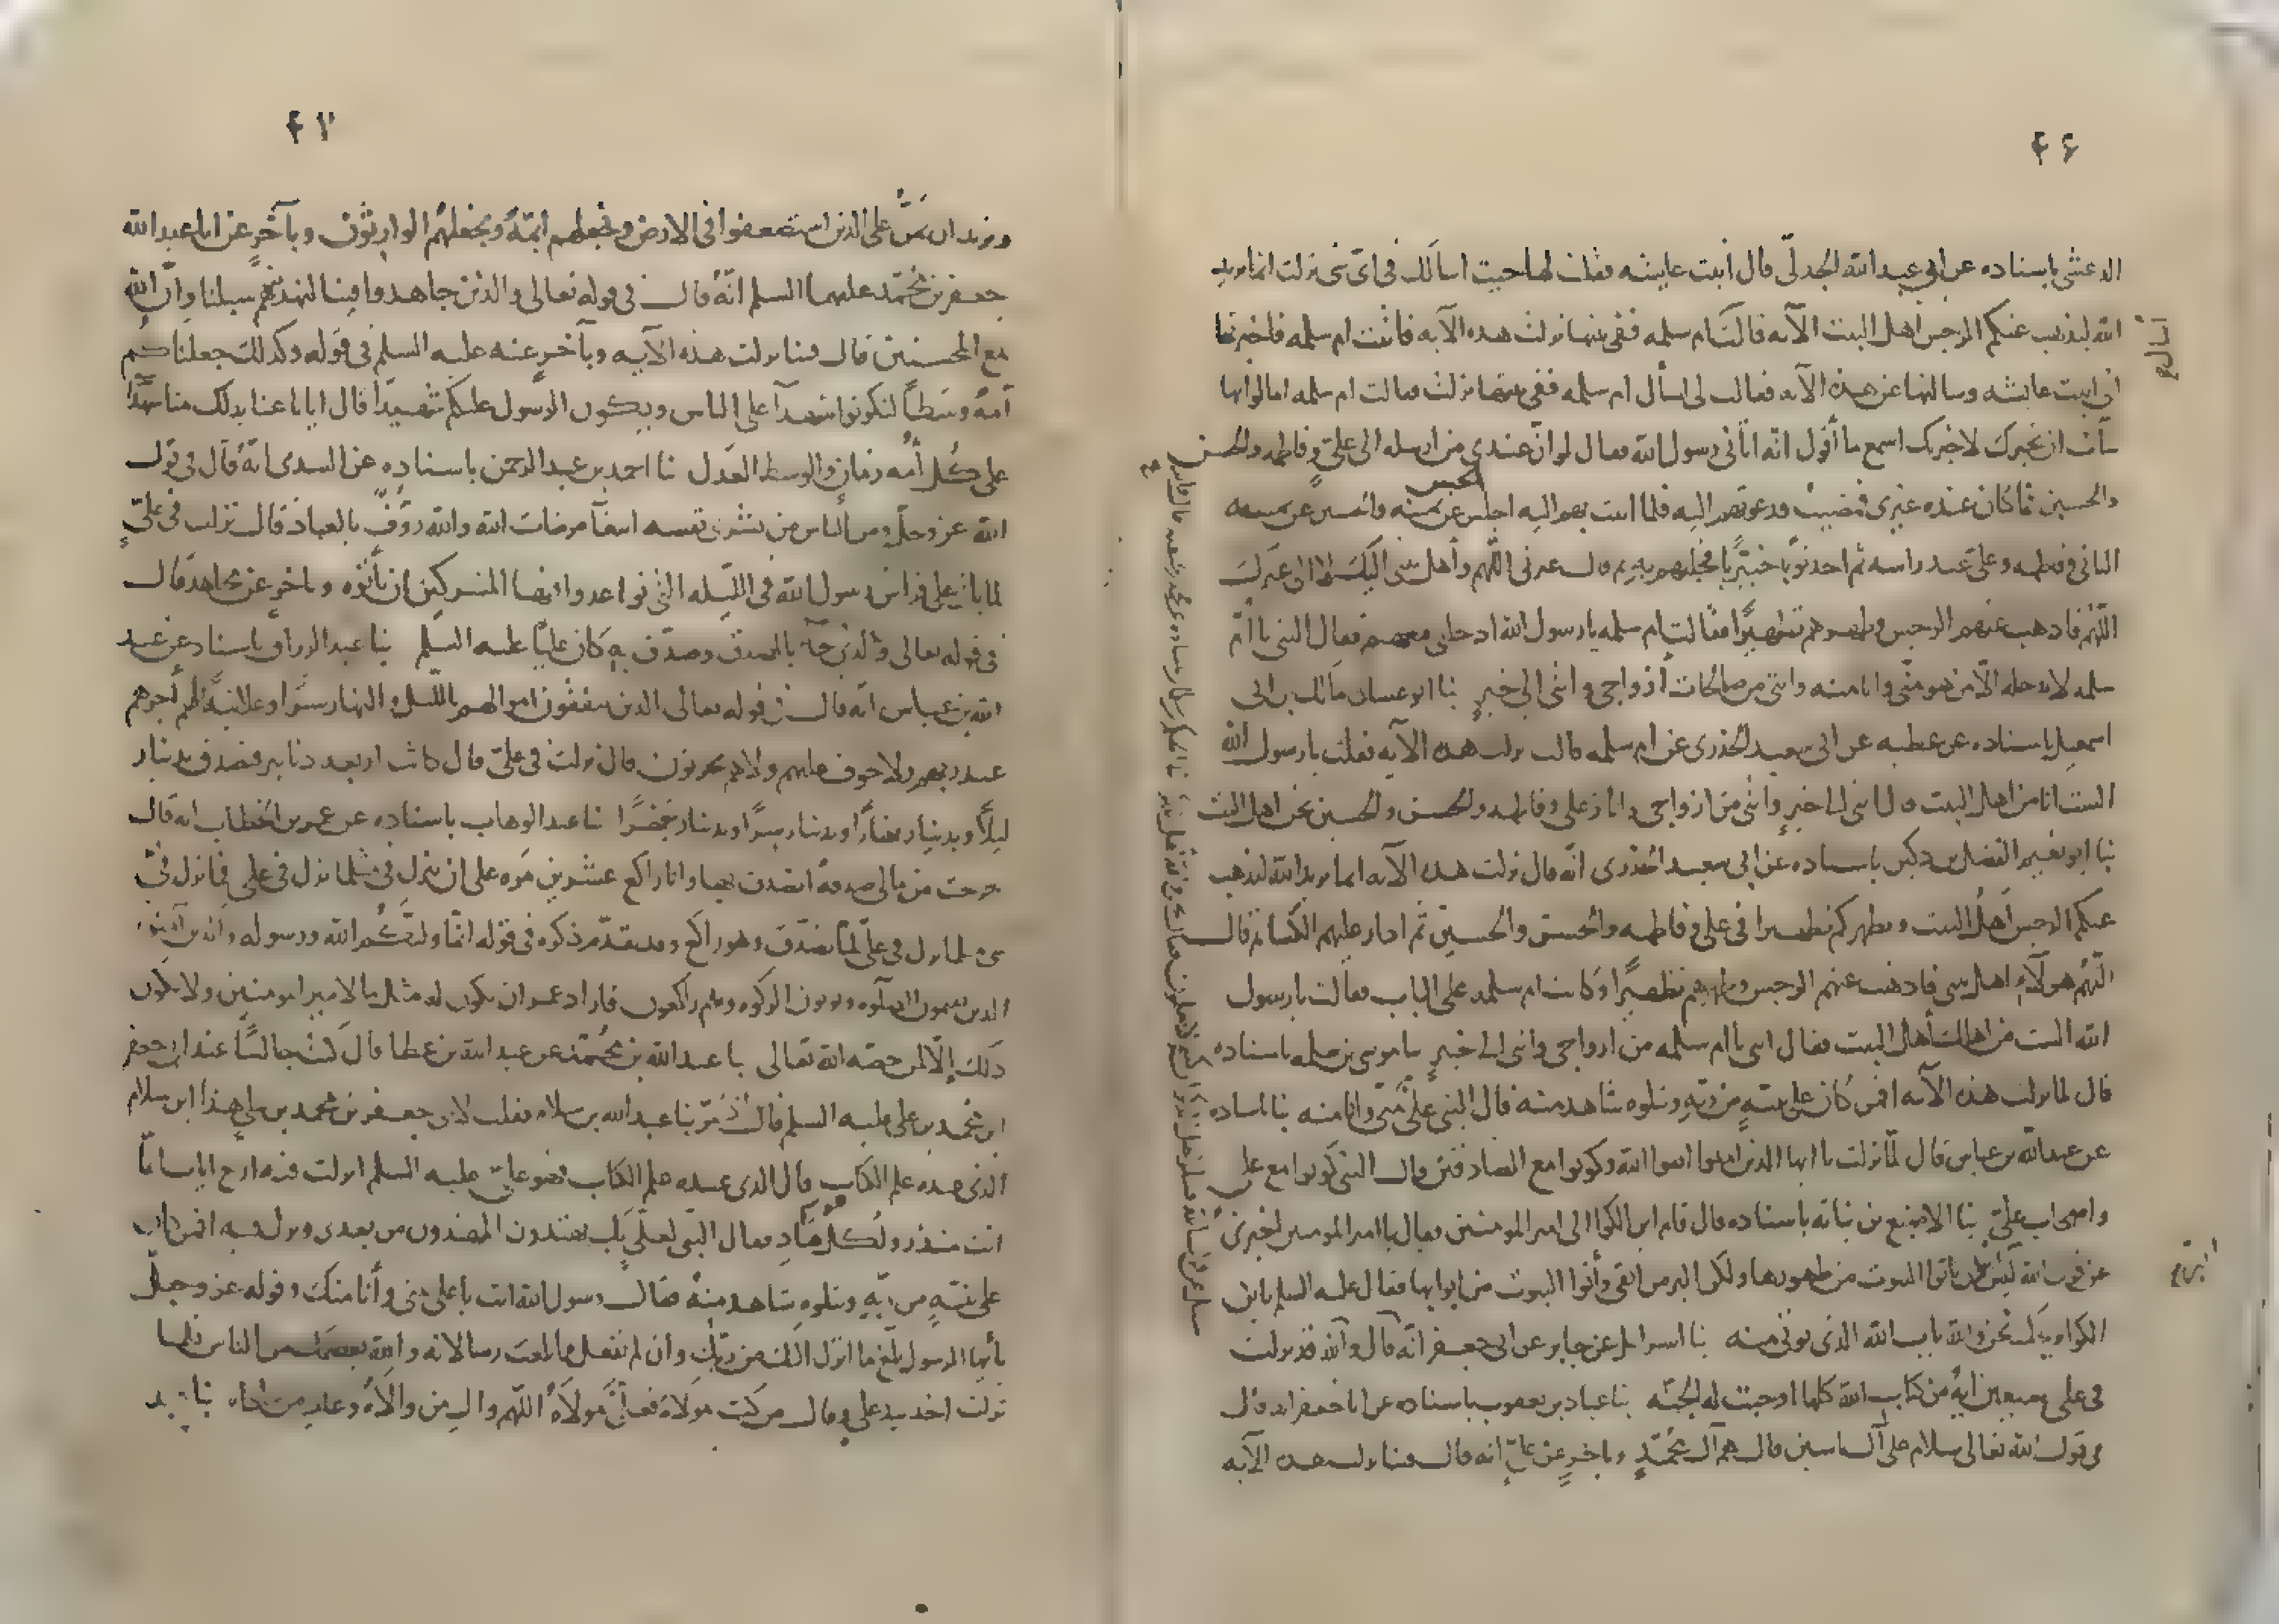 ٤٦
الدغشي باسناده عن ابي عبد الله الجدلي قال أتيت عايشه فقلت لها جيت اسألك في اي شي نزلت انما يريد
الله ليذهب عنكم الرجس اهل البيت الآيه قالت ام سلمه ففي بيتها نزلت هذه الآيه فأتيت ام سلمه فاخبرتها
اني اتيت عايشه وسالتها عن هذه الآيه فقالت لي اسأل ام سلمه ففي بيتها نزلت فقالت ام سلمه اما لو انها
سألت ان نخبرك لاخبرتك اسمع ما أقول انه اتاني رسول الله فقال لو ان عندي من ارسله الى علي وفاطمه والحسن
والحسين فما كان عنده غيري فمضيت فدعوتهم اليه فلما اتيت بهم اليه اجلس الحسن عن يمينه والحسين عن
الثاني وفاطمه وعلي عند راسه ثم اخذ ثوبا خيبريا فجللهم به ثم قال عترتي اللهم وأهل بيتي اليك لا الى غيرك
اللهم فاذهب عنهم الرجس وطهرهم تطهيرا فقالت ام سلمه يا رسول الله ادخلني معهم فقال النبي يا ام
سلمه لا يدخله الا من هو مني وانا منه وانتي من صالحات أزواجي وانتي الى خير نبا ابو غسان مالك بن ابي
اسمعيل باسناده عن عطيه عن ابي سعيد الخدري عن ام سلمه قالت نزلت هذه الآيه فقلت يا رسول الله
الست انا من اهل البيت قال انتي الى خير وانتي من ازواجي وانا وعلي وفاطمه والحسن والحسين نحن اهل البيت
نبا ابو نعيم الفضل بن دكين باسناده عن ابي سعيد الخدري انه قال نزلت هذه الآيه انما يريد الله ليذهب
عنكم الرجس أهل البيت ويطهركم تطهيرا في علي وفاطمه والحسن والحسين ثم ادار عليهم الكسا ثم قال
اللهم هولآء اهل بيتي فاذهب عنهم الرجس وطهرهم تطهيرا وكانت ام سلمه على الباب فقالت يا رسول
الله الست من اهلك أهل البيت فقال انتي يا ام سلمه من ازواجي وانتي الى خير نبا موسى بن سلمه باسناده
قال لما نزلت هذه الآيه افمن كان على بينه من ربه ويتلوه شاهد منه قال النبي علي مني وانا منه نبا باسناده
عن عبد الله بن عباس قال لما نزلت يا ايها الذين امنوا اتقوا الله وكونوا مع الصادقين قال النبي كونوا مع علي
واصحاب علي نبا الاصبغ بن نباته باسناده قال قام ابن الكوا الى امير المومنين فقال يا امير المومنين اخبرني
عن قول الله ليس البر بان تاتوا البيوت من ظهورها ولكن البر من اتقى وأتوا البيوت من ابوابها فقال عليه السلم يابن
الكوا ويلك نحن والله باب الله الذي يوتى منه نبا اسرائيل عن جابر عن ابي جعفر انه قال والله قد نزلت
في علي سبعين ايه من كتاب الله كلها اوجبت له الجنه نبا عباد بن يعقوب باسناده عن ابا جعفر انه قال
في قول الله تعالى سلام على آل ياسين قال هم آل محمد وباخر عن علي انه قال فينا نزلت هذه الآيه
٤٧
ونريد ان نمن على الذين استضعفوا في الارض ونجعلهم ائمة ونجعلهم الوارثون وبآخر عن ابا عبد الله
جعفر بن محمد عليهما السلم انه قال في قوله تعالى والذين جاهدوا فينا لنهدينهم سبلنا وان الله
مع المحسنين قال فينا نزلت هذه الآيه وبآخر عنه عليه السلم في قوله وكذلك جعلناكم
أمة وسطا لتكونوا شهدآ على الناس ويكون الرسول عليكم شهيدا قال ايانا عنا بذلك منا شهدآ
على كل أمه وزمان والوسط العدل نبا احمد بن عبد الرحمن باسناده عن السدي انه قال في قول
الله عز وجل ومن الناس من يشري نفسه ابتغآ مرضات الله والله رؤف بالعباد قال نزلت في علي
لما بات على فراش رسول الله في الليله التي تواعدوا فيها المشركين ان يأتوه وباخر عن مجاهد قال
في قوله تعالى والذي جآ بالصدق وصدق به كان عليا عليه السلم نبا عبد الرزاق باسناده عن عبد
الله بن عباس انه قال في قوله تعالى الذين ينفقون اموالهم بالليل والنهار سرا وعلانية لهم أجرهم
عند ربهم ولا خوف عليهم ولا هم يحزنون قال نزلت في علي قال كانت اربعه دنانير فتصدق بدينار
ليلا وبدينار نهارا وبدينار سرا وبدينار جهرا نبا عبد الوهاب باسناده عن عمر بن الخطاب انه قال
خرجت من مالي صدقة اتصدق بها وانا راكع عشرين مره على ان ينزل في مثل ما نزل في علي فما نزل في
شي لما نزل في علي لما تصدق وهو راكع وقد تقدم ذكره في قوله انما وليكم الله ورسوله والذين آمنوا
الذين يقيمون الصلوه ويوتون الزكوه وهم راكعون فاراد عمر ان يكون له مثل ما لامير المومنين ولا يكون
ذلك إلا لمن خصه الله تعالى نبا عبد الله بن محمد عن عبد الله بن عطا قال كنت جالسا عند ابي جعفر
ابن محمد بن علي عليه السلم قال اذ مر بنا عبد الله بن سلام فقلت لابي جعفر بن محمد بن علي هذا ابن سلام
الذي عنده علم الكتاب قال الذي عنده علم الكتاب هو علي عليه السلم انزلت فيه اربع ايات انما
انت منذر ولكل قوم هاد فقال النبي لعلي بك يهتدون المهتدون من بعدي ونزل فيه افمن كان
على بينه من ربه ويتلوه شاهد منه فقال رسول الله انت يا علي مني وأنا منك وقوله عز وجل
يأيها الرسول بلغ ما انزل اليك من ربك وان لم تفعل فما بلغت رسالاته والله يعصمك من الناس فلما
نزلت اخذ بيد علي وقال من كنت مولاه فعلي مولاه اللهم وال من والاه وعاد من عاداه نبا